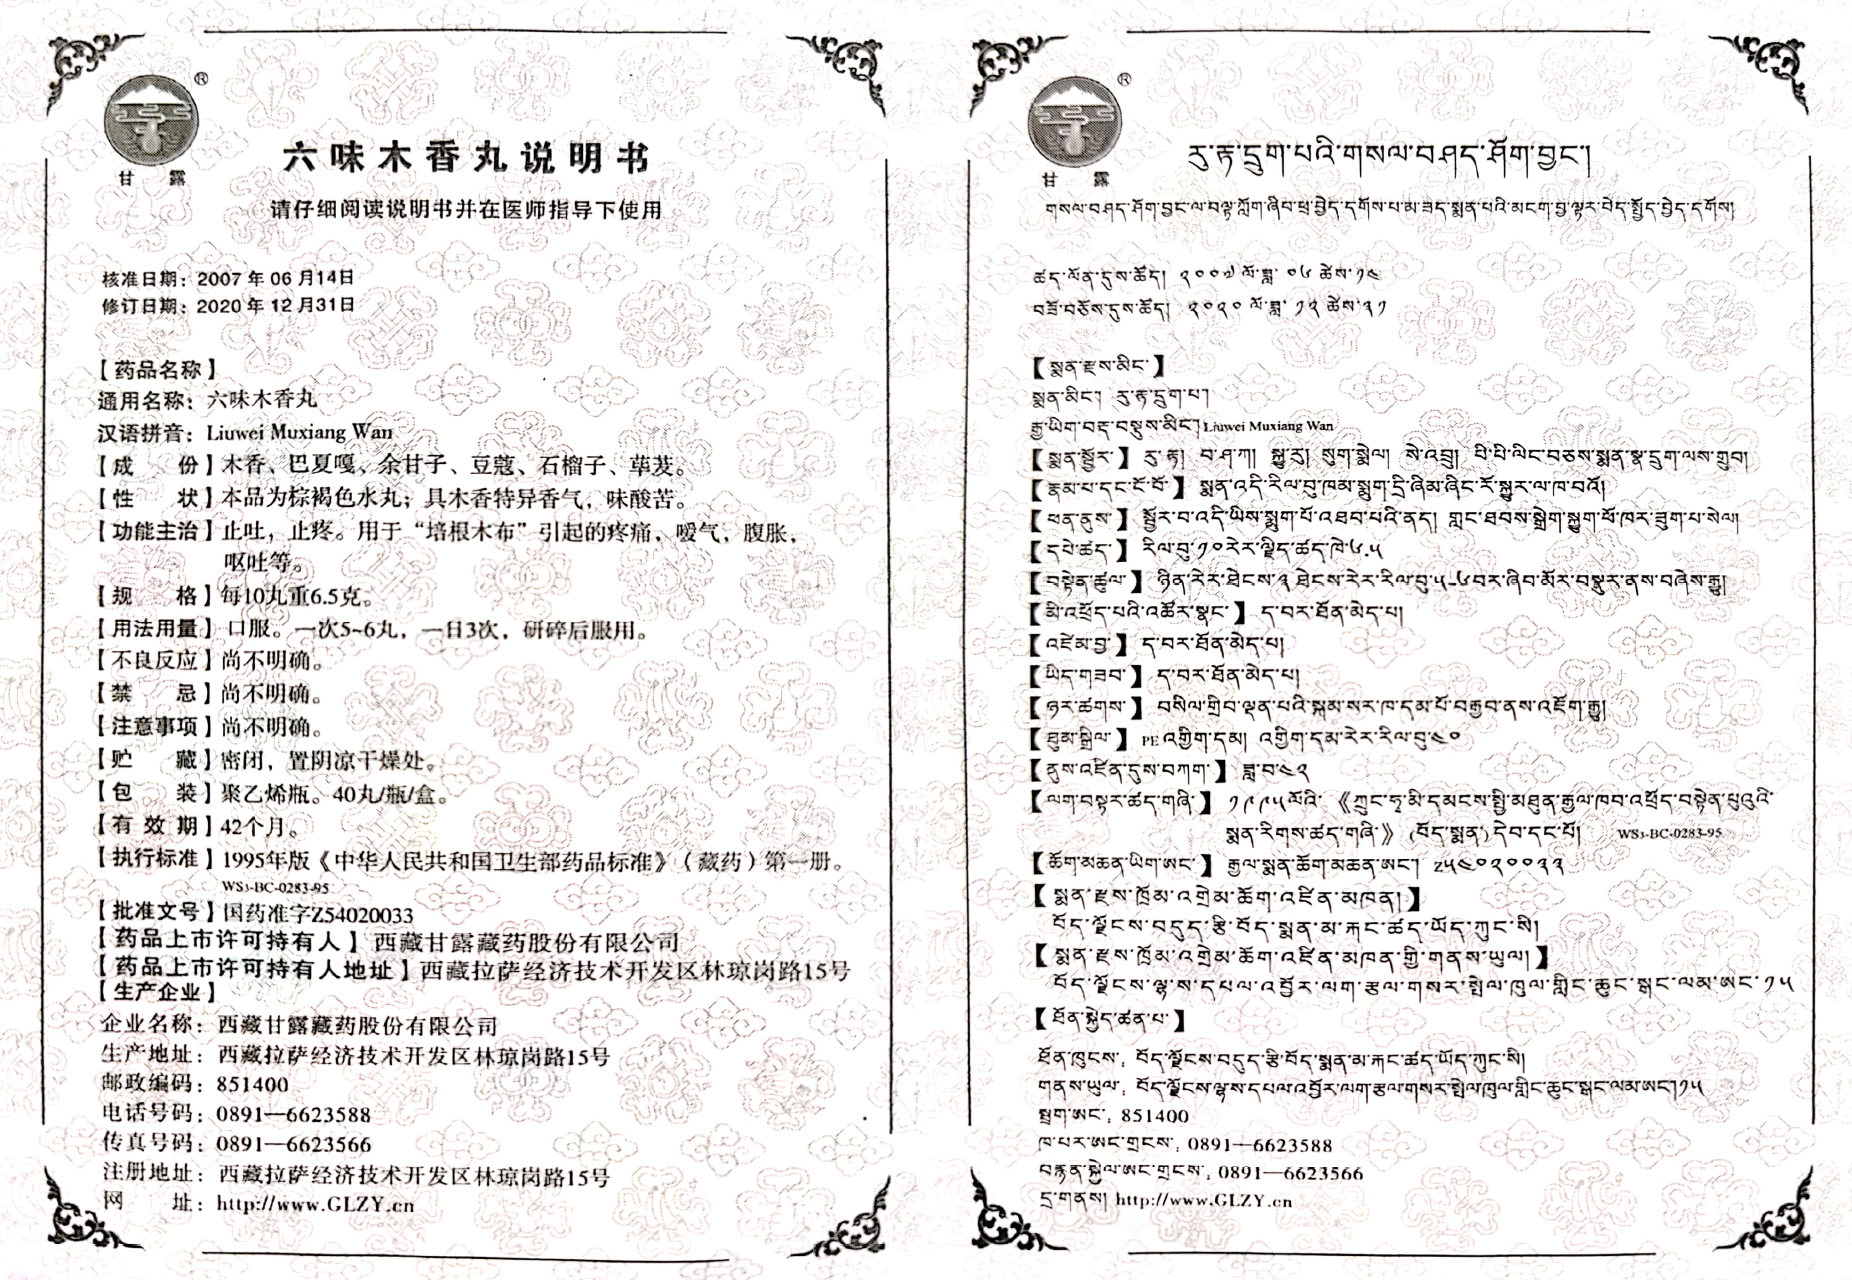 ®
甘 露
六味木香丸说明书
请仔细阅读说明书并在医师指导下使用
核准日期：2007 年 06 月14日
修订日期：2020 年 12 月31日
【药品名称】
通用名称：六味木香丸
汉语拼音：Liuwei Muxiang Wan
【成 份】木香、巴夏嘎、余甘子、豆蔻、石榴子、荜茇。
【性 状】本品为棕褐色水丸；具木香特异香气，味酸苦。
【功能主治】止吐，止疼。用于“培根木布”引起的疼痛，嗳气，腹胀，
呕吐等。
【规 格】每10丸重6.5克。
【用法用量】口服。一次5~6丸，一日3次，研碎后服用。
【不良反应】尚不明确。
【禁 忌】尚不明确。
【注意事项】尚不明确。
【贮 藏】密闭，置阴凉干燥处。
【包 装】聚乙烯瓶。40丸/瓶/盒。
【有 效 期】42个月。
【执行标准】1995年版《中华人民共和国卫生部药品标准》（藏药）第一册。
WS3-BC-0283-95
【批准文号】国药准字Z54020033
【药品上市许可持有人】西藏甘露藏药股份有限公司
【药品上市许可持有人地址】西藏拉萨经济技术开发区林琼岗路15号
【生产企业】
企业名称：西藏甘露藏药股份有限公司
生产地址：西藏拉萨经济技术开发区林琼岗路15号
邮政编码：851400
电话号码：0891—6623588
传真号码：0891—6623566
注册地址：西藏拉萨经济技术开发区林琼岗路15号
网 址：http://www.GLZY.cn
®
甘 露
རུ་རྟ་དྲུག་པའི་གསལ་བཤད་ཤོག་བྱང་།
གསལ་བཤད་ཤོག་བྱང་ལ་བལྟ་ཀློག་ཞིབ་ཕྲ་བྱེད་དགོས་པ་མ་ཟད་སྨན་པའི་མངག་བྱ་ལྟར་བེད་སྤྱོད་བྱེད་དགོས།
ཚད་ལོན་དུས་ཚོད། ༢༠༠༧ ལོ་ཟླ་ ༠༦ ཚེས་༡༤
བཟོ་བཅོས་དུས་ཚོད། ༢༠༢༠ ལོ་ཟླ་ ༡༢ ཚེས་༣༡
【སྨན་རྫས་མིང་】
སྨན་མིང་། རུ་རྟ་དྲུག་པ།
རྒྱ་ཡིག་བརྡ་བསྡུས་མིང་། Liuwei Muxiang Wan
【སྨན་སྦྱོར་】 རུ་རྟ། བ་ཤ་ཀ། སྐྱུ་རུ། སུག་སྨེལ། སེ་འབྲུ། པི་པི་ལིང་བཅས་སྨན་སྣ་དྲུག་ལས་གྲུབ།
【རྣམ་པ་དང་ངོ་བོ་】 སྨན་འདི་རིལ་བུ་ཁམ་སྨུག་དྲི་ཞིམ་ཞིང་རོ་སྐྱུར་ལ་ཁ་བའོ།
【ཕན་ནུས་】 སྦྱོར་བ་འདི་ཡིས་སྨུག་པོ་འཐབ་པའི་ནད། གླང་ཐབས་སྒྲེག་སྐྱུག་ཕོ་ཁར་ཟུག་པ་སེལ།
【དཔེ་ཚད་】 རིལ་བུ་༡༠རེར་ལྗིད་ཚད་ཁེ་༦.༥
【བསྟེན་ཚུལ་】 ཉིན་རེར་ཐེངས་༣ ཐེངས་རེར་རིལ་བུ་༥-༦བར་ཞིབ་མོར་བསྣུར་ནས་བཞེས་རྒྱུ།
【མི་འཕྲོད་པའི་འཚོར་སྣང་】 ད་བར་ཐོན་མེད་པ།
【འཛེམ་བྱ་】 ད་བར་ཐོན་མེད་པ།
【ཡིད་གཟབ་】 ད་བར་ཐོན་མེད་པ།
【ཉར་ཚགས་】 བསིལ་གྲིབ་ལྡན་པའི་སྐམ་སར་ཁ་དམ་པོ་བརྒྱབ་ནས་འཇོག་རྒྱུ།
【ཐུམ་སྒྲིལ་】 PE འགྱིག་དམ། འགྱིག་དམ་རེར་རིལ་བུ་༤༠
【ནུས་འཛིན་དུས་བཀག་】 ཟླ་བ་༤༢
【ལག་བསྟར་ཚད་གཞི་】 ༡༩༩༥ལོའི་《ཀྲུང་ཧྭ་མི་དམངས་སྤྱི་མཐུན་རྒྱལ་ཁབ་འཕྲོད་བསྟེན་པུའུའི་
སྨན་རིགས་ཚད་གཞི་》（བོད་སྨན）དེབ་དང་པོ། WS3-BC-0283-95
【ཆོག་མཆན་ཡིག་ཨང་】 རྒྱལ་སྨན་ཆོག་མཆན་ཨང་། Z༥༤༠༢༠༠༣༣
【སྨན་རྫས་ཁྲོམ་འགྲེམ་ཆོག་འཛིན་མཁན།】
བོད་ལྗོངས་བདུད་རྩི་བོད་སྨན་མ་རྐང་ཚད་ཡོད་ཀུང་སི།
【སྨན་རྫས་ཁྲོམ་འགྲེམ་ཆོག་འཛིན་མཁན་གྱི་གནས་ཡུལ།】
བོད་ལྗོངས་ལྷ་ས་དཔལ་འབྱོར་ལག་རྩལ་གསར་སྤེལ་ཁུལ་གླིང་ཆུང་སྒང་ལམ་ཨང་་༡༥
【ཐོན་སྐྱེད་ཚན་པ་】
ཐོན་ཁུངས་： བོད་ལྗོངས་བདུད་རྩི་བོད་སྨན་མ་རྐང་ཚད་ཡོད་ཀུང་སི།
གནས་ཡུལ་： བོད་ལྗོངས་ལྷ་ས་དཔལ་འབྱོར་ལག་རྩལ་གསར་སྤེལ་ཁུལ་གླིང་ཆུང་སྒང་ལམ་ཨང་།༡༥
སྦྲག་ཨང་：851400
ཁ་པར་ཨང་གྲངས་：0891—6623588
བརྙན་སྐྱེལ་ཨང་གྲངས་：0891—6623566
དྲ་གནས། http://www.GLZY.cn